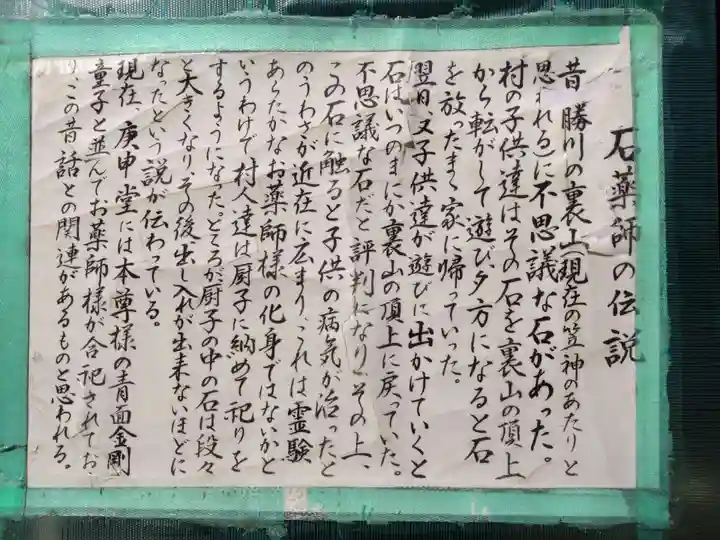 石薬師の伝説
昔勝川の裏山(現在の笠神のあたりと
思われる)に不思議な石があった。
村の子供達はその石を裏山の頂上
から転がして遊び、夕方になると石
を放ったまゝ家に帰っていった。
翌日又子供達が遊びに出かけていくと
石はいつのまにか裏山の頂上に戻っていた。
不思議な石だと評判になり、その上、
この石に触ると子供の病気が治ったと
のうわさが近在に広まり、これは霊験
あらたかなお薬師様の化身ではないかと
いうわけで村人達は厨子に納めて祀りを
するようになった。ところが厨子の中の石は段々
と大きくなり、その後出し入れが出来ないほどに
なったという説が伝わっている。
現在庚申堂には本尊様の青面金剛
童子と並んでお薬師様が合祀されてお
り、この昔話との関連があるものと思われる。